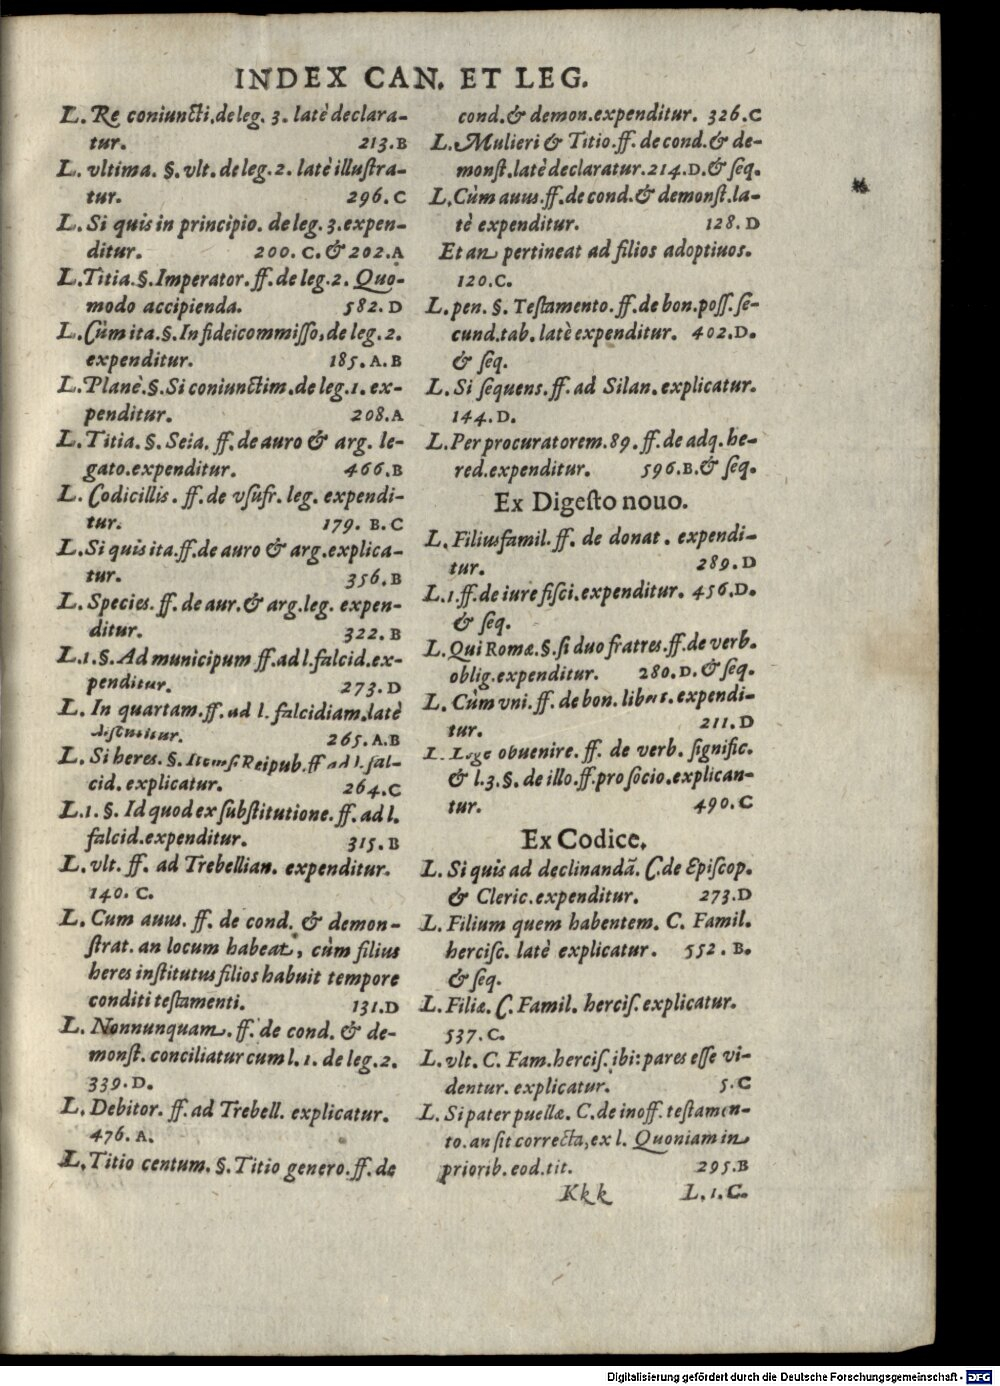 INDEX CAN. ET LEG.
L. Re coniuncti, de leg. 3. latè declara-
tur. 213.B
L. vltima. §. vlt. de leg. 2. latè illustra-
tur. 296.C
L. Si quis in principio. de leg. 3. expen-
ditur. 200. C. & 202.A
L. Titia. §. Imperator. ff. de leg. 2. Quo-
modo accipienda. 582.D
L. Cùm ita. §. In fideicommisso, de leg. 2.
expenditur. 185. A. B
L. Planè. §. Si coniunctim. de leg. 1. ex-
penditur. 208.A
L. Titia. §. Seia. ff. de auro & arg. le-
gato. expenditur. 466.B
L. Codicillis. ff. de vsufr. leg. expendi-
tur. 179. B. C
L. Si quis ita. ff. de auro & arg. explica-
tur. 356.B
L. Species. ff. de aur. & arg. leg. expen-
ditur. 322. B
L. 1. §. Ad municipum ff. ad l. falcid. ex-
penditur. 273.D
L. In quartam. ff. ad l. falcidiam. latè
265. A.B
L. Si heres. §. Reipub. ff ad l. fal-
cid. explicatur. 264.C
L. 1. §. Id quod ex substitutione. ff. ad l.
falcid. expenditur. 315. B
L. vlt. ff. ad Trebellian. expenditur.
140. C.
L. Cum auus. ff. de cond. & demon-
strat. an locum habeat, cùm filius
heres institutus filios habuit tempore
conditi testamenti. 131.D
L. Nonnunquam. ff. de cond. & de-
monst. conciliatur cum l. 1. de leg. 2.
339. D.
L. Debitor. ff. ad Trebell. explicatur.
476. A.
L. Titio centum. §. Titio genero. ff. de
cond. & demon. expenditur. 326.C
L. Mulieri & Titio. ff. de cond. & de-
monst. latè declaratur. 214.D. & seq.
L. Cùm auus. ff. de cond. & demonst. la-
tè expenditur. 128. D
Et an pertineat ad filios adoptiuos.
120.C.
L. pen. §. Testamento. ff. de bon. poss. se-
cund. tab. latè expenditur. 402.D.
& seq.
L. Si sequens. ff. ad Silan. explicatur.
144. D.
L. Per procuratorem. 89. ff. de adq. he-
red. expenditur. 596.B. & seq.
Ex Digesto nouo.
L. Filiusfamil. ff. de donat. expendi-
tur. 289.D
L. 1. ff. de iure fisci. expenditur. 456.D.
& seq.
L. Qui Romæ. §. si duo fratres. ff. de verb.
oblig. expenditur. 280. D. & seq.
L. Cùm vni. ff. de bon. libert. expendi-
tur. 211. D
L. Lege obuenire. ff. de verb. signific.
& l. 3. §. de illo. ff. pro socio. explican-
tur. 490.C
Ex Codice.
L. Si quis ad declinandã. C. de Episcop.
& Cleric. expenditur. 273.D
L. Filium quem habentem. C. Famil.
hercisc. latè explicatur. 552. B.
& seq.
L. Filiæ. C. Famil. hercis. explicatur.
537. C.
L. vlt. C. Fam. hercis. ibi: pares esse vi-
dentur. explicatur. 5. C
L. Si pater puellæ. C. de inoff. testamen-
to. an sit correcta, ex l. Quoniam in
priorib. eod. tit. 295.B
Kkk L. 1. C.
Digitalisierung gefördert durch die Deutsche Forschungsgemeinschaft - DFG